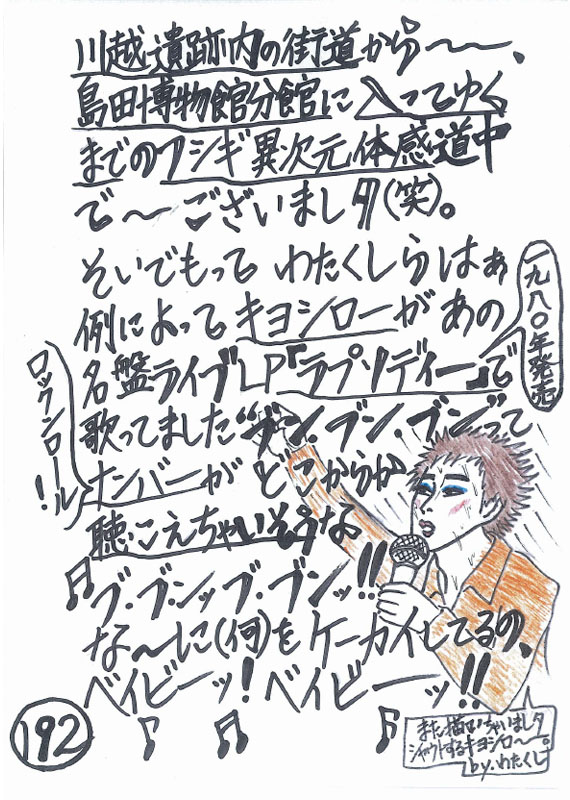 川越遺跡内の街道から〜〜、
島田博物館分館に入ってゆく
までのフシギ異次元体感道中
で〜ございましタ(笑)。
そいでもって わたくしらはぁ
例によってキヨシローがあの
名盤ライブLP『ラプソディー』で
一九八〇年発売
歌ってました“ブン.ブン.ブン”って
ナンバーが どこからか
ロックンロール!
聴こえちゃいそうな
♫ブ・ブンッブ・ブンッ!!
な〜に(何)をケーカイしてるの、
ベイビーッ!ベイビーーッ!!
また描いちゃいましタ
シャウトするキヨシロ〜。
by.わたくし
192